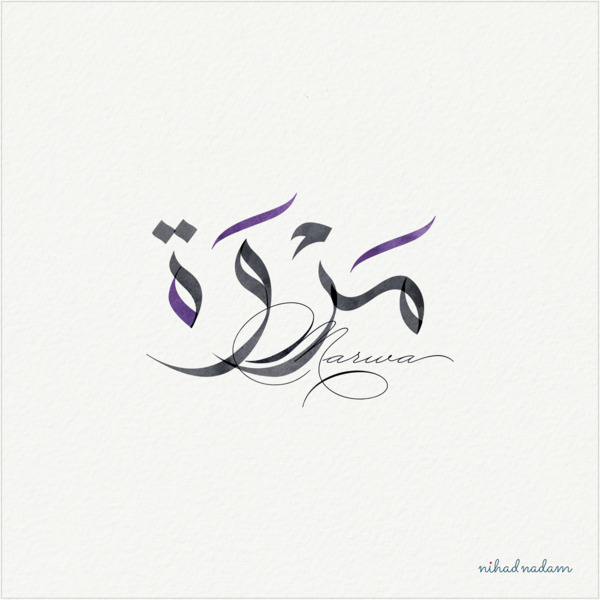 مَرْوَة
Marwa
nihad nadam